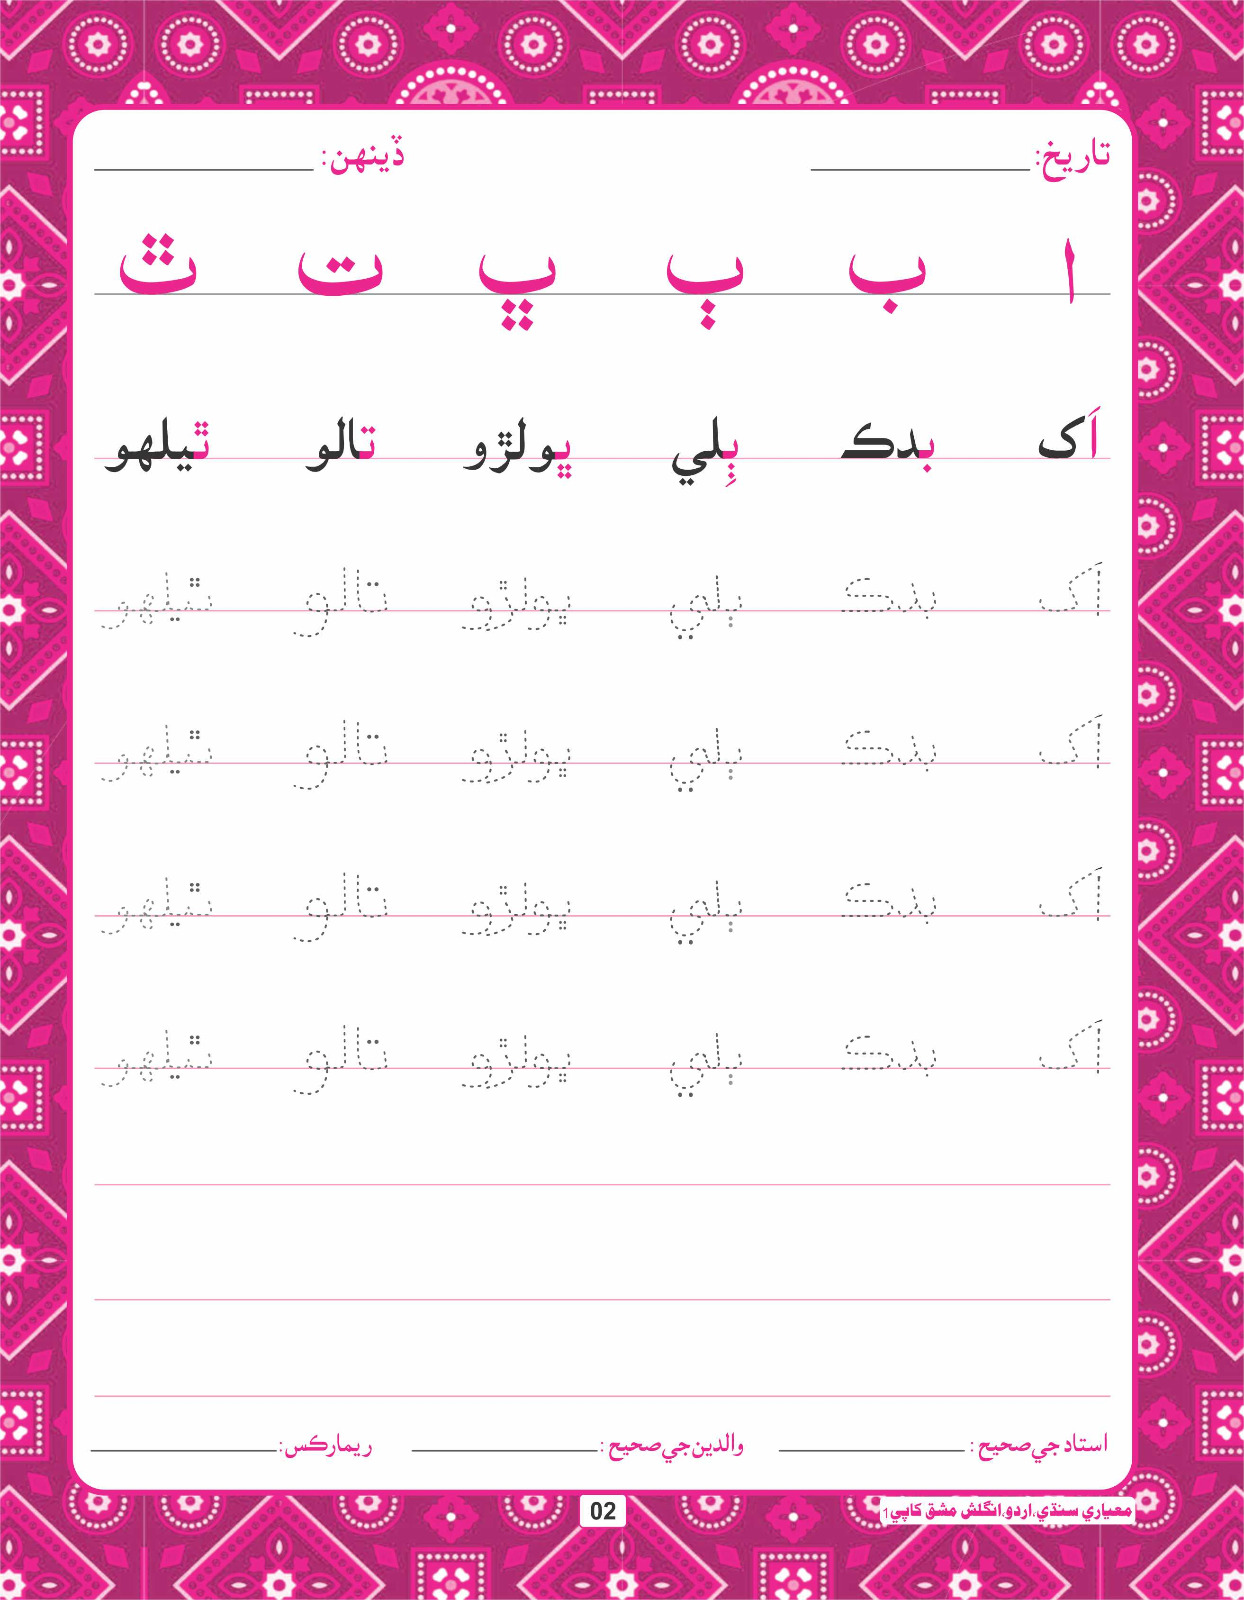 تاريخ: ڏينهن:
ا ب ٻ ڀ ت ٿ
اَک بدڪ ٻِلي ڀولڙو تالو ٿيلهو
اَک بدڪ ٻلي ڀولڙو تالو ٿيلهو
اَک بدڪ ٻلي ڀولڙو تالو ٿيلهو
اَک بدڪ ٻلي ڀولڙو تالو ٿيلهو
اَک بدڪ ٻلي ڀولڙو تالو ٿيلهو
استاد جي صحيح: والدين جي صحيح: ريمارڪس:
02 معياري سنڌي،اردو،انگلش مشق ڪاپي 1